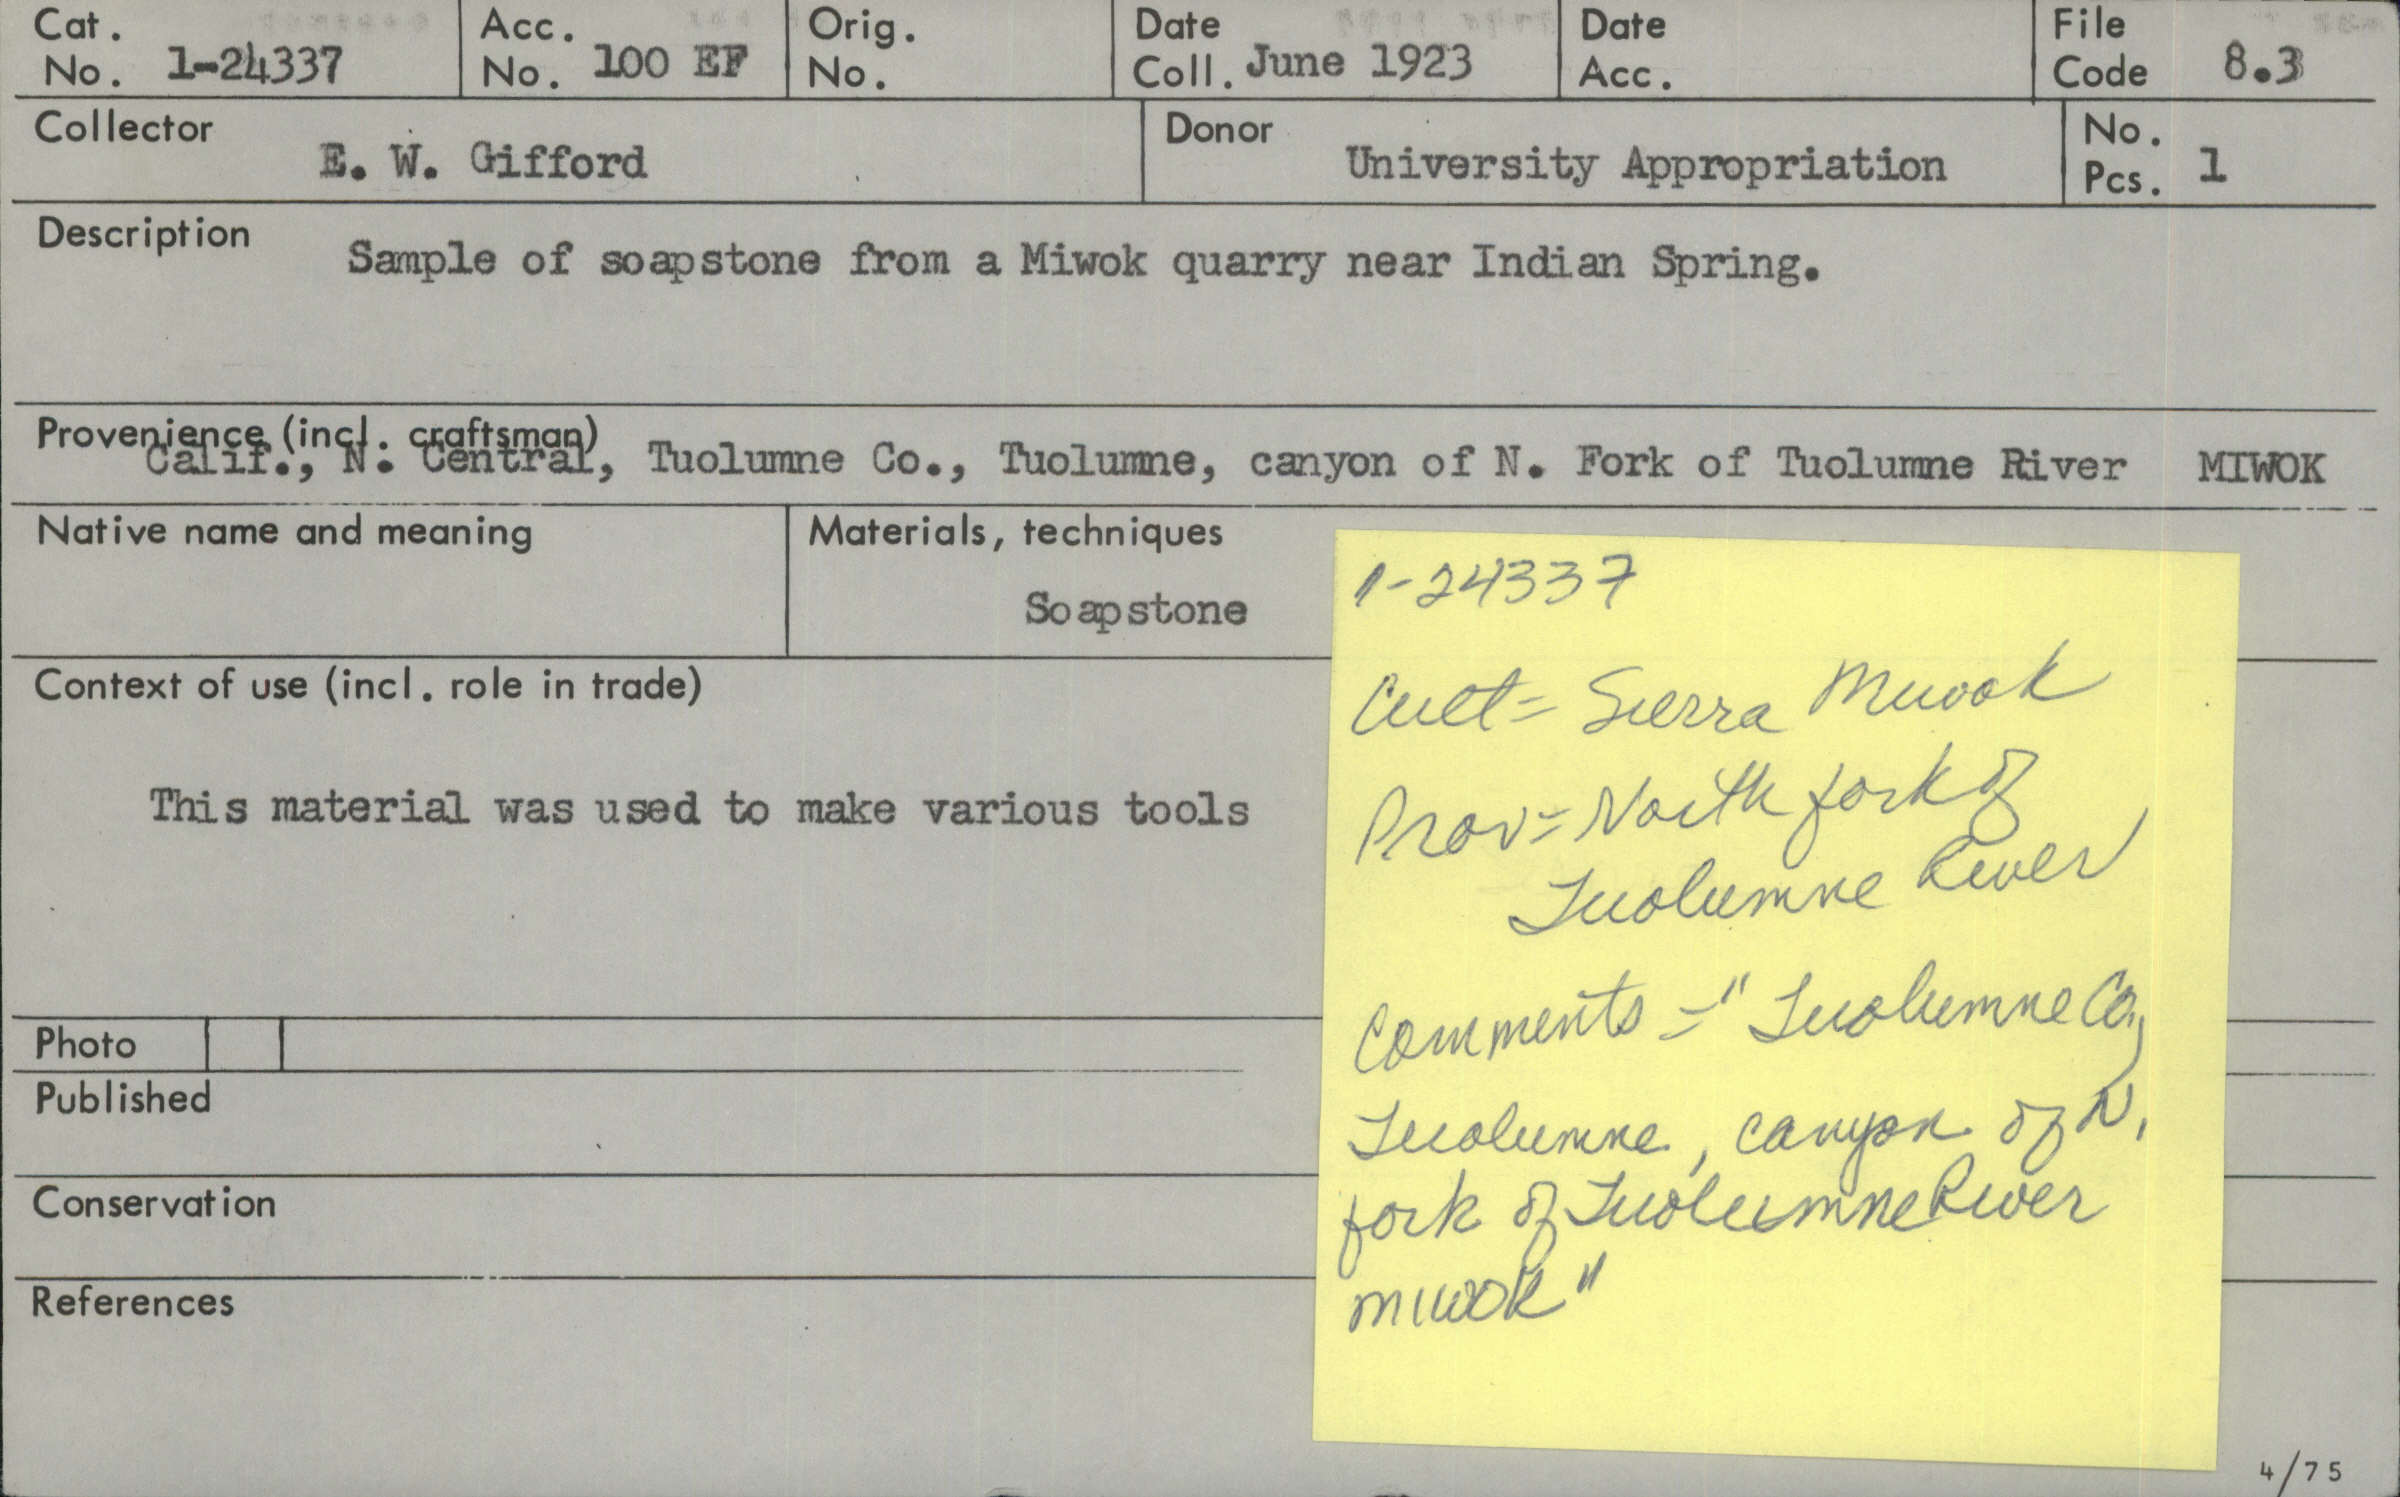 Cat. No. 1-24337 Acc. No. 100 EF Orig. No. Date Coll. June 1923 Date Acc. File Code 8.3
Collector E. W. Gifford Donor University Appropriation No. Pcs. 1
Description Sample of soapstone from a Miwok quarry near Indian Spring.
Provenience (incl. craftsman)
Calif., N. Central, Tuolumne Co., Tuolumne, canyon of N. Fork of Tuolumne River MIWOK
Native name and meaning Materials, techniques
Soapstone
Context of use (incl. role in trade)
This material was used to make various tools
Photo
Published
Conservation
References
1-24337
Cult= Sierra Miwok
Prov= North fork of
Tuolumne River
Comments = "Tuolumne Co,
Tuolumne, canyon of N.
fork of Tuolumne River
Miwok"
4/75